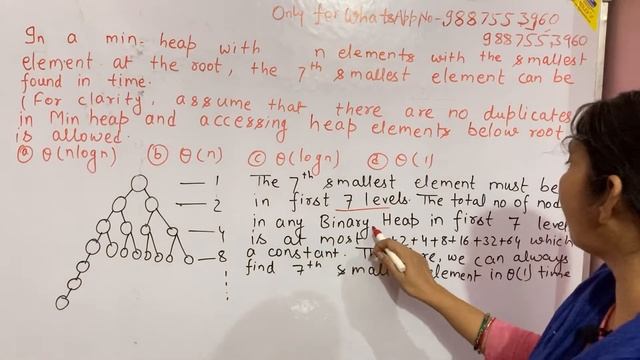 Only for WhatsApp No-9887553960
9887553960
In a min heap with n elements with the smallest
element at the root, the 7th smallest element can be
found in time.
(For clarity, assume that there are no duplicates
in Min heap and accessing heap elements below root
is allowed.
ⓐ θ(nlogn) ⓑ θ(n) ⓒ θ(logn) ⓓ θ(1)
1
2
4
8
The 7th smallest element must be
in first 7 levels. The total no of nod
in any Binary Heap in first 7 level
is at most +2+4+8+16+32+64 which
a constant. we can always
find 7th element in θ(1) time